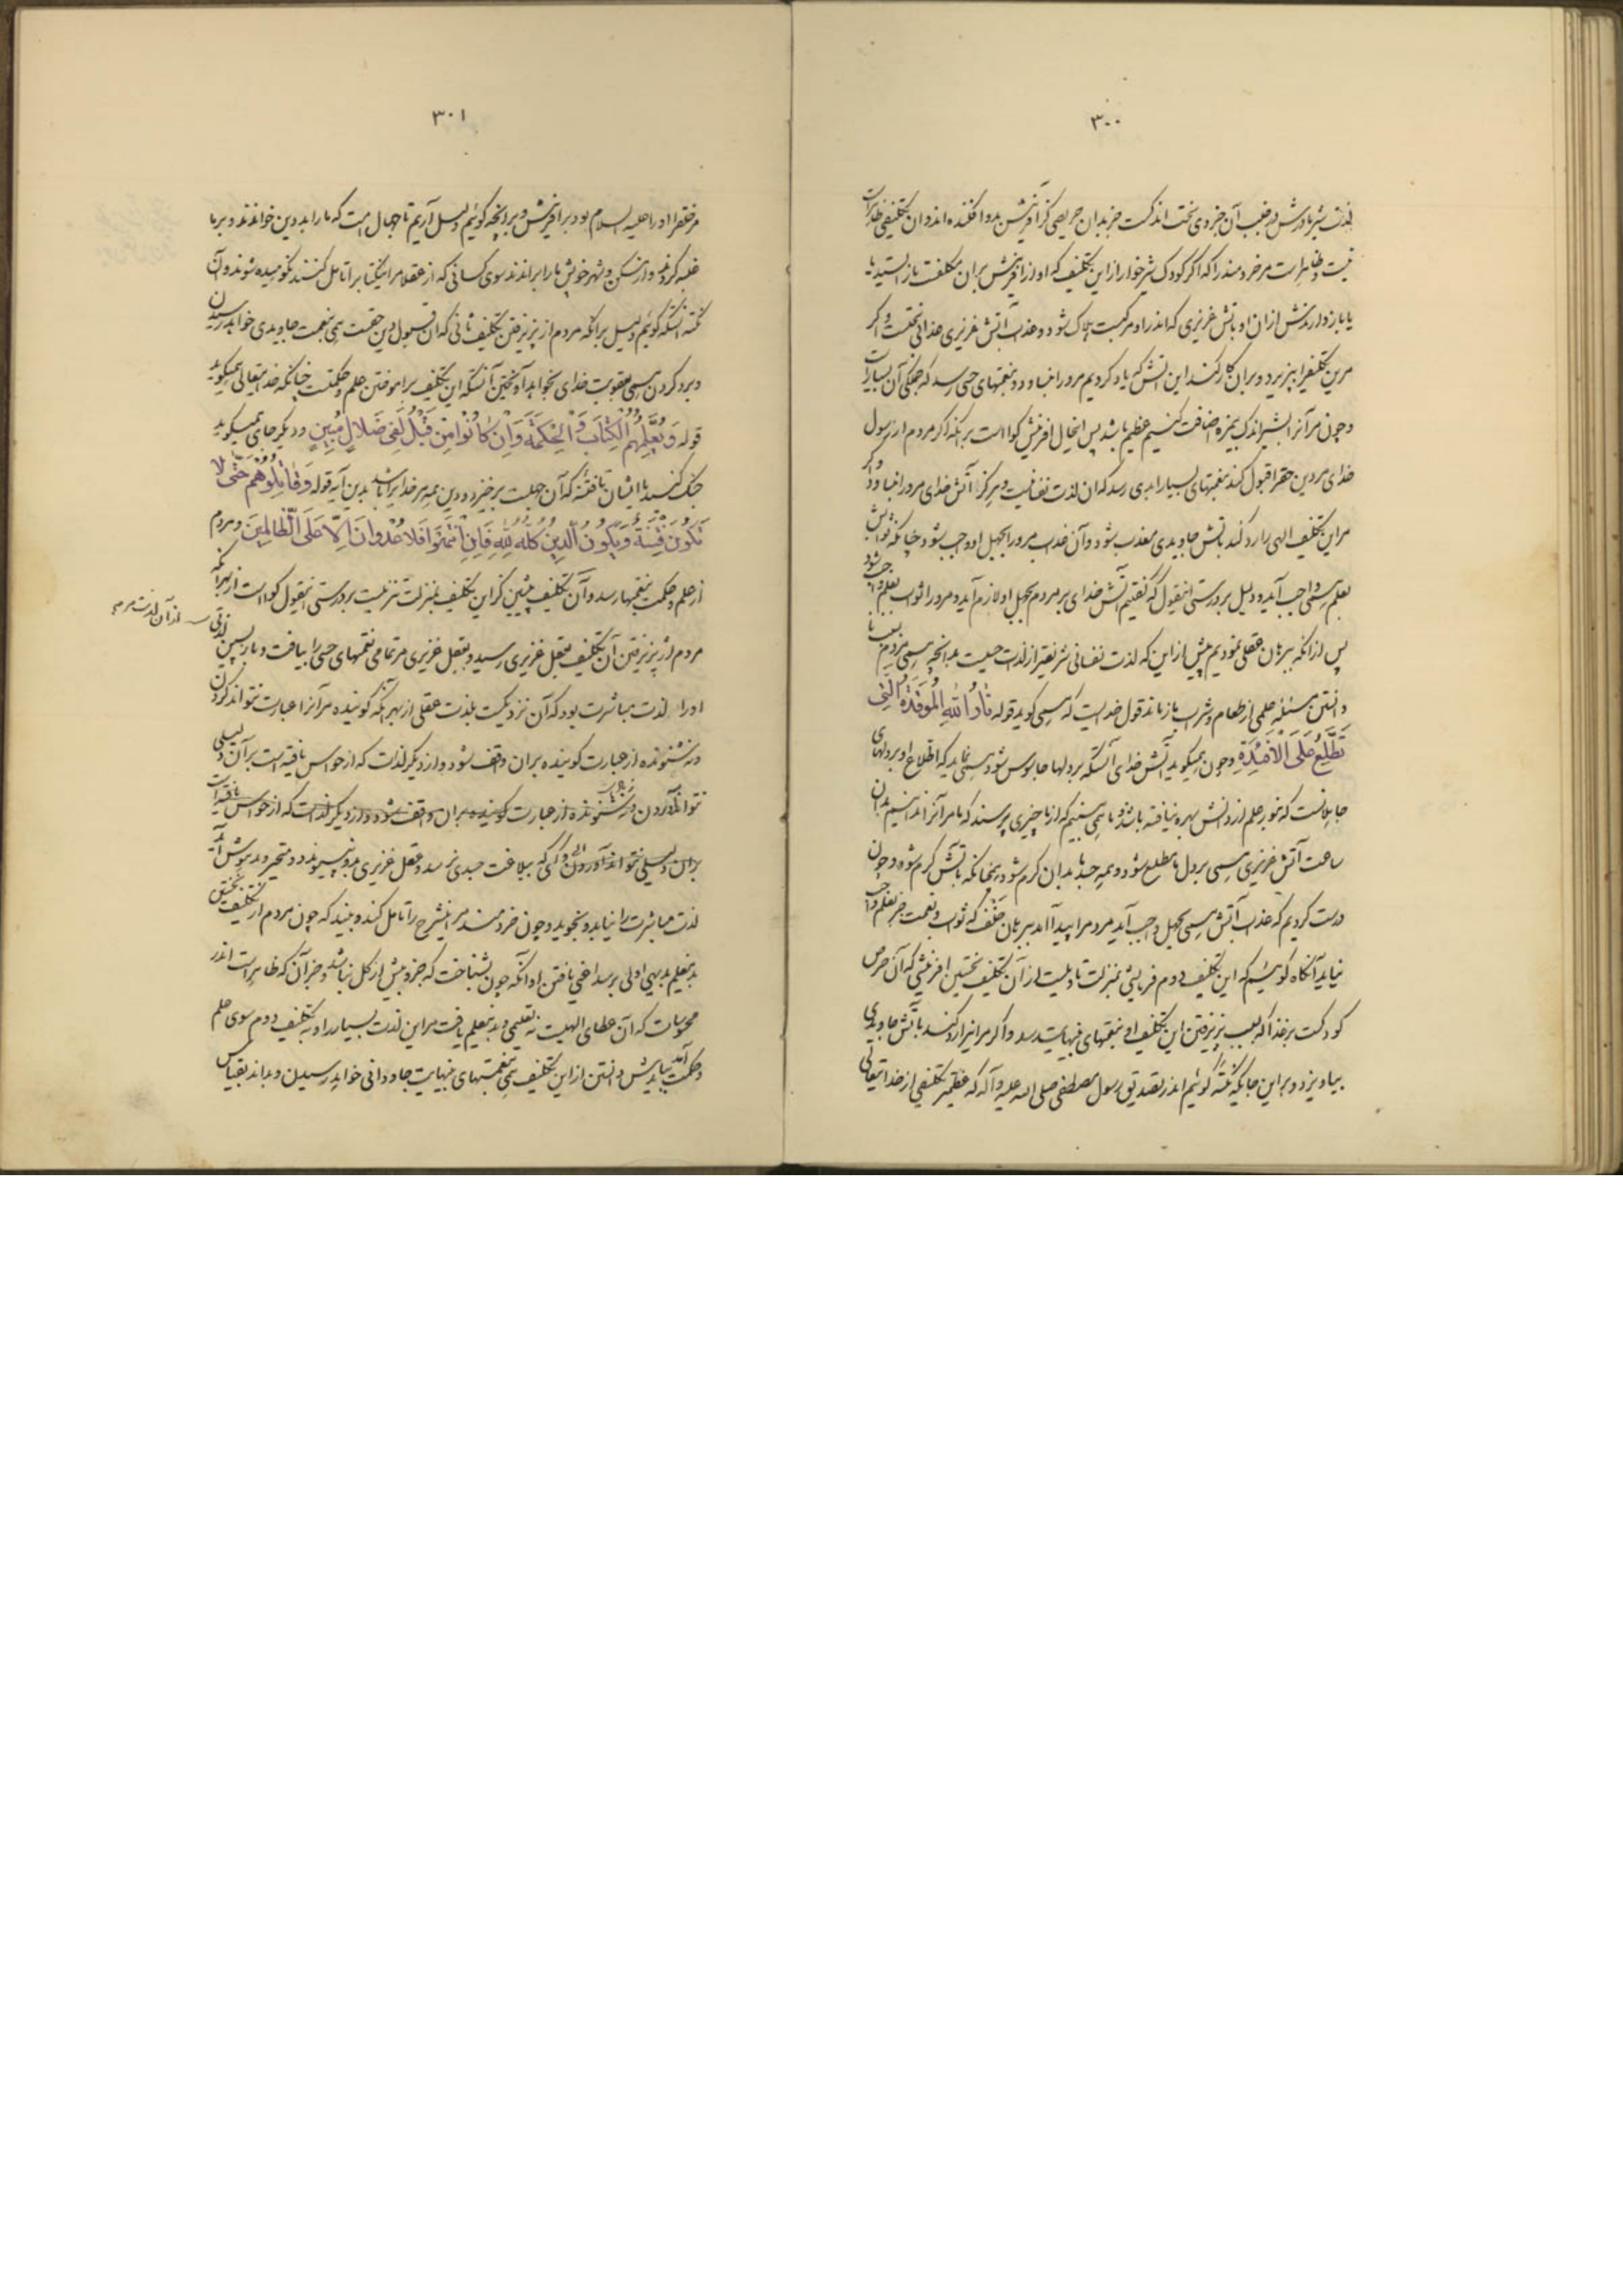 ۳۰۰
لذت شیر مادرش و طلب آن جزوی سخت اندکست جز بدان حریصی کز آفرینش بدو افکنده‌اند و آن تکلیفی ظاهر است
نیست و ظاهر است مر خردمند را که اگر کودک شیرخوار از این تکلیف که او از آفرینش بران مکلفست باز ایستد یا
یا باز دارندش از ان او بآتش غریزی که اندر او مرکبست هلاک شود و عذاب آتش غریزی عذابی سختست و اگر
مرین تکلیف را بپذیرد و بران کار کند این آتش که یاد کردیم مرورا نیاوزد و بنعمتهای حسی رسد که جملگی آن بسیار است
و چون مر آنرا بشیر اندک بمزه اضافت کنیم عظیم باشد پس اینحال آفرینش گواست بر آنکه اگر مردم از رسول
خدای مر دین حق را قبول کند بنعمتهای بسیار ابدی رسد که ان لذت نفسانیست و هرگز آتش خدای مرورا نیاوزد و اگر
مراین تکلیف الهی را رد کند بآتش جاویدی معذب شود و آن عذاب مرورا بجهل او واجب شود چنانکه ثوابش
بعلم همی واجب آید و دلیل بر درستی اینقول که گفتیم آتش خدای بر مردم بجهل او لازم آید و مرورا ثواب بعلم واجب شود
پس از آنکه ببرهان عقلی نمودیم پیش از این که لذت نفسانی شریفتر از لذت حسیست بدانچه همی مردم بسبب
دانستن مسئله علمی از طعام و شراب باز ماند قول خدایست که همی گوید قوله نَارُ اللّهِ الْمُوقَدَةُ الَّتِی
تَطَّلِعُ عَلَی الْأَفْئِدَةِ و چون همیگوید آتش خدای آنستکه بر دلها جاسوس شود همی نماید که اطلاع او بر دلهای
جاهلانست که نور علم از دانش بهره نیافته باشد و ما همی بینیم که از ما چیزی پرسند که ما مر آنرا ندانیم بدان
ساعت آتش غریزی همی بر دل ما مطلع شود و همه جسد ما بدان گرم شود همچنانکه بآتش گرم شود و چون
درست کردیم که عذاب آتش همی بجهل واجب آید مر مردم را پیدا آمد ببرهان خلف که ثواب و نعمت جز بعلم واجب
نیاید آنگاه گوئیم که این تکلیف دوم فرمایشی بمنزلت تاویلیست از آن تکلیف نخستین آفرینشی که آن حرص
کودکست بر غذا که بسبب پذیرفتن این تکلیف او بنعمتهای بینهایت رسد و اگر مرانرا رد کند بآتش جاویدی
بیاویزد و بر این جایگه نکته گوئیم اندر تصدیق رسول مصطفی صلی الله علیه و آله که عظیمتر تکلیفی از خدایتعالی
۳۰۱
مر خلق را او را علیه السلام بود بر آفرینش و بر آنچه گوئیم دلیل آریم تا جهال امت که ما را بد دین خواندند و بر ما
غلبه کردند و از مسکن و شهر خویش ما را براندند سوی کسانی که از عقلا مر این کتاب را تامل کنند نکوهیده شوند و آن
نکته آنستکه گوئیم دلیل بر آنکه مردم از پذیرفتن تکلیف ثانی که ان قبول دین حقست همی بنعمت جاویدی خواهد رسیدن
و برد کردن همی بعقوبت خدای بخواهد آویختن آنستکه این تکلیف بر آموختن علم و حکمتست چنانکه خدایتعالی همیگوید
قوله وَیُعَلِّمُهُمُ الْکِتَابَ وَالْحِکْمَةَ وَإِنْ کَانُوا مِنْ قَبْلُ لَفِی ضَلَالٍ مُبِینٍ و دیگر جای همیگوید
جنگ کنید با ایشان تا فتنه که آن جهلست برخیزد و دین همه مر خدایرا باشد بدین آیه قوله وَقَاتِلُوهُمْ حَتَّی لَا
تَکُونَ فِتْنَةٌ وَیَکُونَ الدِّینُ کُلُّهُ لِلّهِ فَإِنِ انْتَهَوْا فَلَا عُدْوَانَ إِلَّا عَلَی الظَّالِمِینَ و مردم
از علم و حکمت بنعمتها رسد و آن تکلیف پیشین کز این تکلیف بمنزلت تنزیلیست بر درستی اینقول گواست از بهر آنکه
مردم از پذیرفتن آن تکلیف بعقل غریزی رسید و بعقل غریزی مر تمامی نعمتهای حسی را بیافت و بازپسین لذتی
از آن لذت مردم
اورا لذت مباشرت بود که آن نزدیکست بلذت عقلی از بهر آنکه گوینده مر آنرا عبارت نتواند کردن
و نه شنونده از عبارت گوینده بران واقف شود و از دیگر لذات که از حواس یافته است بر آن دلیلی
نتواند آوردن و نه شنونده از عبارت گوینده بران واقف شود و از دیگر لذات که از حواس یافته است
بران دلیلی نتواند آوردن و آنکس که ببلاغت جسدی نرسد و عقل غریزی بدو نپیوندد و متحیر و مدهوش آید
لذت مباشرت را نیابد و نجوید و چون خردمند مر این شرح را تامل کند و بیند که چون مردم از تکلیف نخستین
بد بتعلیم بدیهی اولی برسد اعنی یافتن او آنکه چون بشناخت که جزو بیش از کل نباشد و جز آن که ظاهر است اندر
محسوسات که آن عطای الهیست نه تعلیمی و بد بتعلیم یافت مراین لذت بسیار را و به تکلیف دوم سوی علم
و حکمت آمد بیایدش دانستن از این تکلیف همی بنعمتهای بینهایت جاودانی خواهد رسیدن و بداند بقیاس